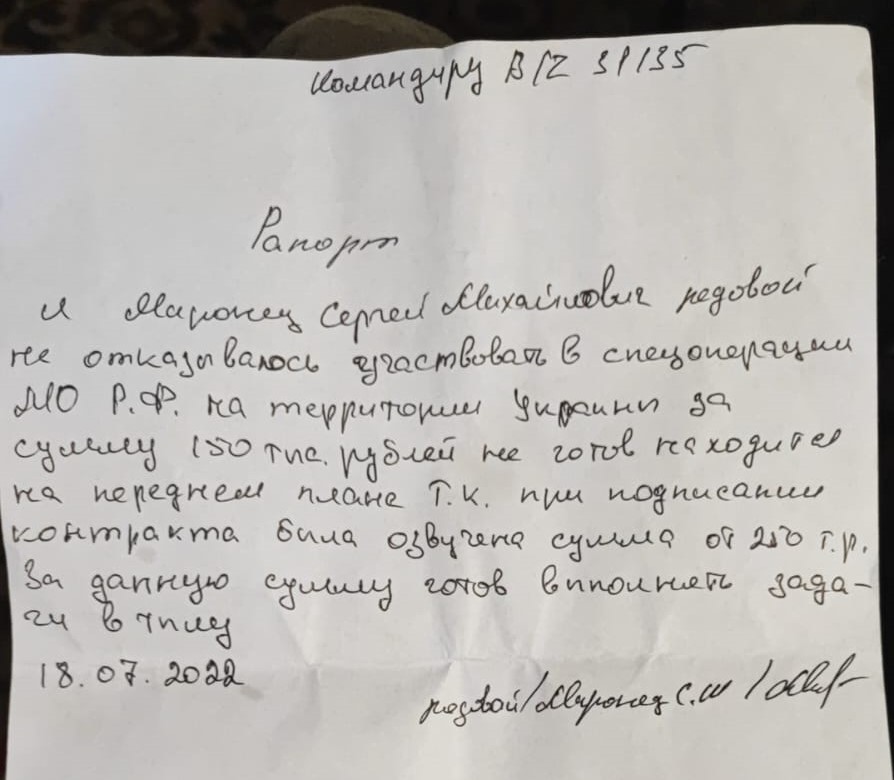 Командиру В/Ч 31135
Рапорт
Я Миронец Сергей Михайлович рядовой
не отказываюсь участвовать в спецоперации
МО Р.Ф. на территории Украины за
сумму 150 тыс. рублей не готов находится
на переднем плане т.к. при подписании
контракта была озвучена сумма от 250 т.р.
За данную сумму готов выполнять зада-
чи в тылу
18.07.2022
рядовой/Миронец С.М /